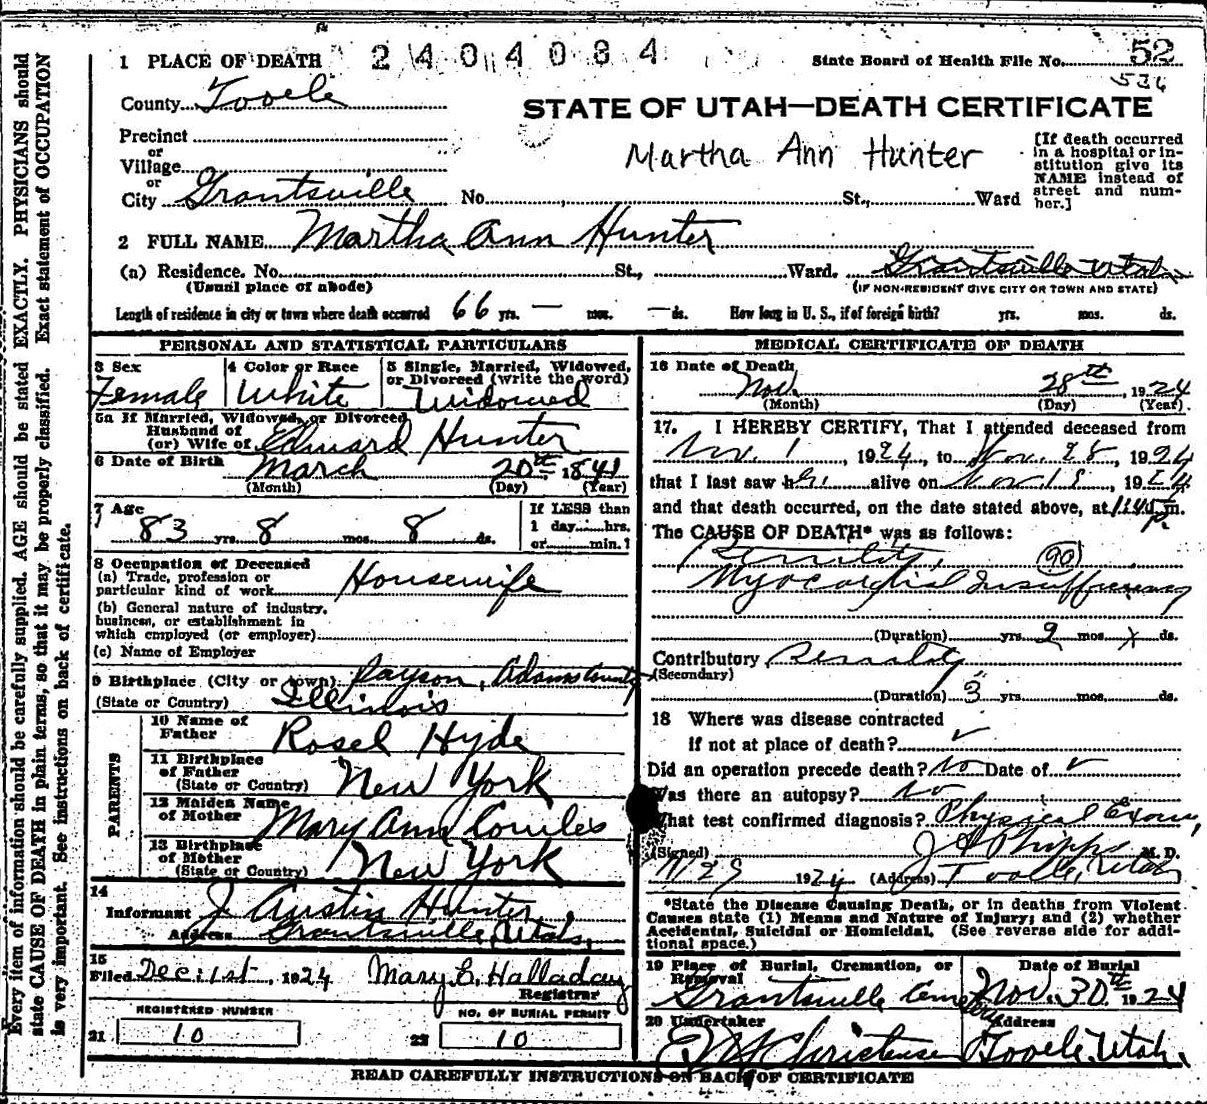 2404034
1 PLACE OF DEATH
State Board of Health File No. 52
536
County Tooele
STATE OF UTAH—DEATH CERTIFICATE
Precinct
or
Village
or
City Grantsville No. St., Ward
Martha Ann Hunter
[If death occurred in a hospital or in-
stitution give its
NAME instead of
street and num-
ber.]
2 FULL NAME Martha Ann Hunter
(a) Residence. No. St., Ward. Grantsville Utah
(Usual place of abode) (IF NON-RESIDENT GIVE CITY OR TOWN AND STATE)
Length of residence in city or town where death occurred 66 yrs. — mos. — ds. How long in U. S., if of foreign birth? yrs. mos. ds.
PERSONAL AND STATISTICAL PARTICULARS
3 Sex 4 Color or Race 5 Single, Married, Widowed,
or Divorced (write the word)
Female White Widowed
5a If Married, Widowed, or Divorced
Husband of
(or) Wife of Edward Hunter
6 Date of Birth March 20th 1841
(Month) (Day) (Year)
7 Age 83 yrs. 8 mos. 8 ds.
If LESS than
1 day hrs.
or min.?
8 Occupation of Deceased
(a) Trade, profession or
particular kind of work Housewife
(b) General nature of industry,
business, or establishment in
which employed (or employer)
(c) Name of Employer
9 Birthplace (City or town) Payson, Adams County
(State or Country) Illinois
PARENTS
10 Name of
Father Rosel Hyde
11 Birthplace
of Father
(State or Country) New York
12 Maiden Name
of Mother Mary Ann Cowles
13 Birthplace
of Mother
(State or Country) New York
14
Informant J. Austin Hunter
Address Grantsville, Utah,
15
Filed Dec. 1st, 1924 Mary E. Halladay
Registrar
REGISTERED NUMBER
21 10
NO. OF BURIAL PERMIT
22 10
MEDICAL CERTIFICATE OF DEATH
16 Date of Death
Nov. 28th, 1924
(Month) (Day) (Year)
17. I HEREBY CERTIFY, That I attended deceased from
Nov. 1, 1924, to Nov. 28, 1924
that I last saw her alive on Nov. 18, 1924
and that death occurred, on the date stated above, at m.
The CAUSE OF DEATH* was as follows:
Senility, 90
Myocardial Insufficiency
(Duration) yrs. 2 mos. x ds.
Contributory Senility
(Secondary)
(Duration) 3 yrs. mos. ds.
18 Where was disease contracted
if not at place of death?
Did an operation precede death? No Date of
Was there an autopsy? No
What test confirmed diagnosis? Physical Exam,
(Signed) Phipps M. D.
11/29 1924 (Address) Tooele, Utah
*State the Disease Causing Death, or in deaths from Violent
Causes state (1) Means and Nature of Injury; and (2) whether
Accidental, Suicidal or Homicidal. (See reverse side for addi-
tional space.)
19 Place of Burial, Cremation, or
Removal Date of Burial
Grantsville Cemetery Nov. 30th 1924
20 Undertaker Address
Christensen Tooele, Utah.
READ CAREFULLY INSTRUCTIONS ON BACK OF CERTIFICATE
Every item of information should be carefully supplied. AGE should be stated EXACTLY. PHYSICIANS should
state CAUSE OF DEATH in plain terms, so that it may be properly classified. Exact statement of OCCUPATION
is very important. See instructions on back of certificate.